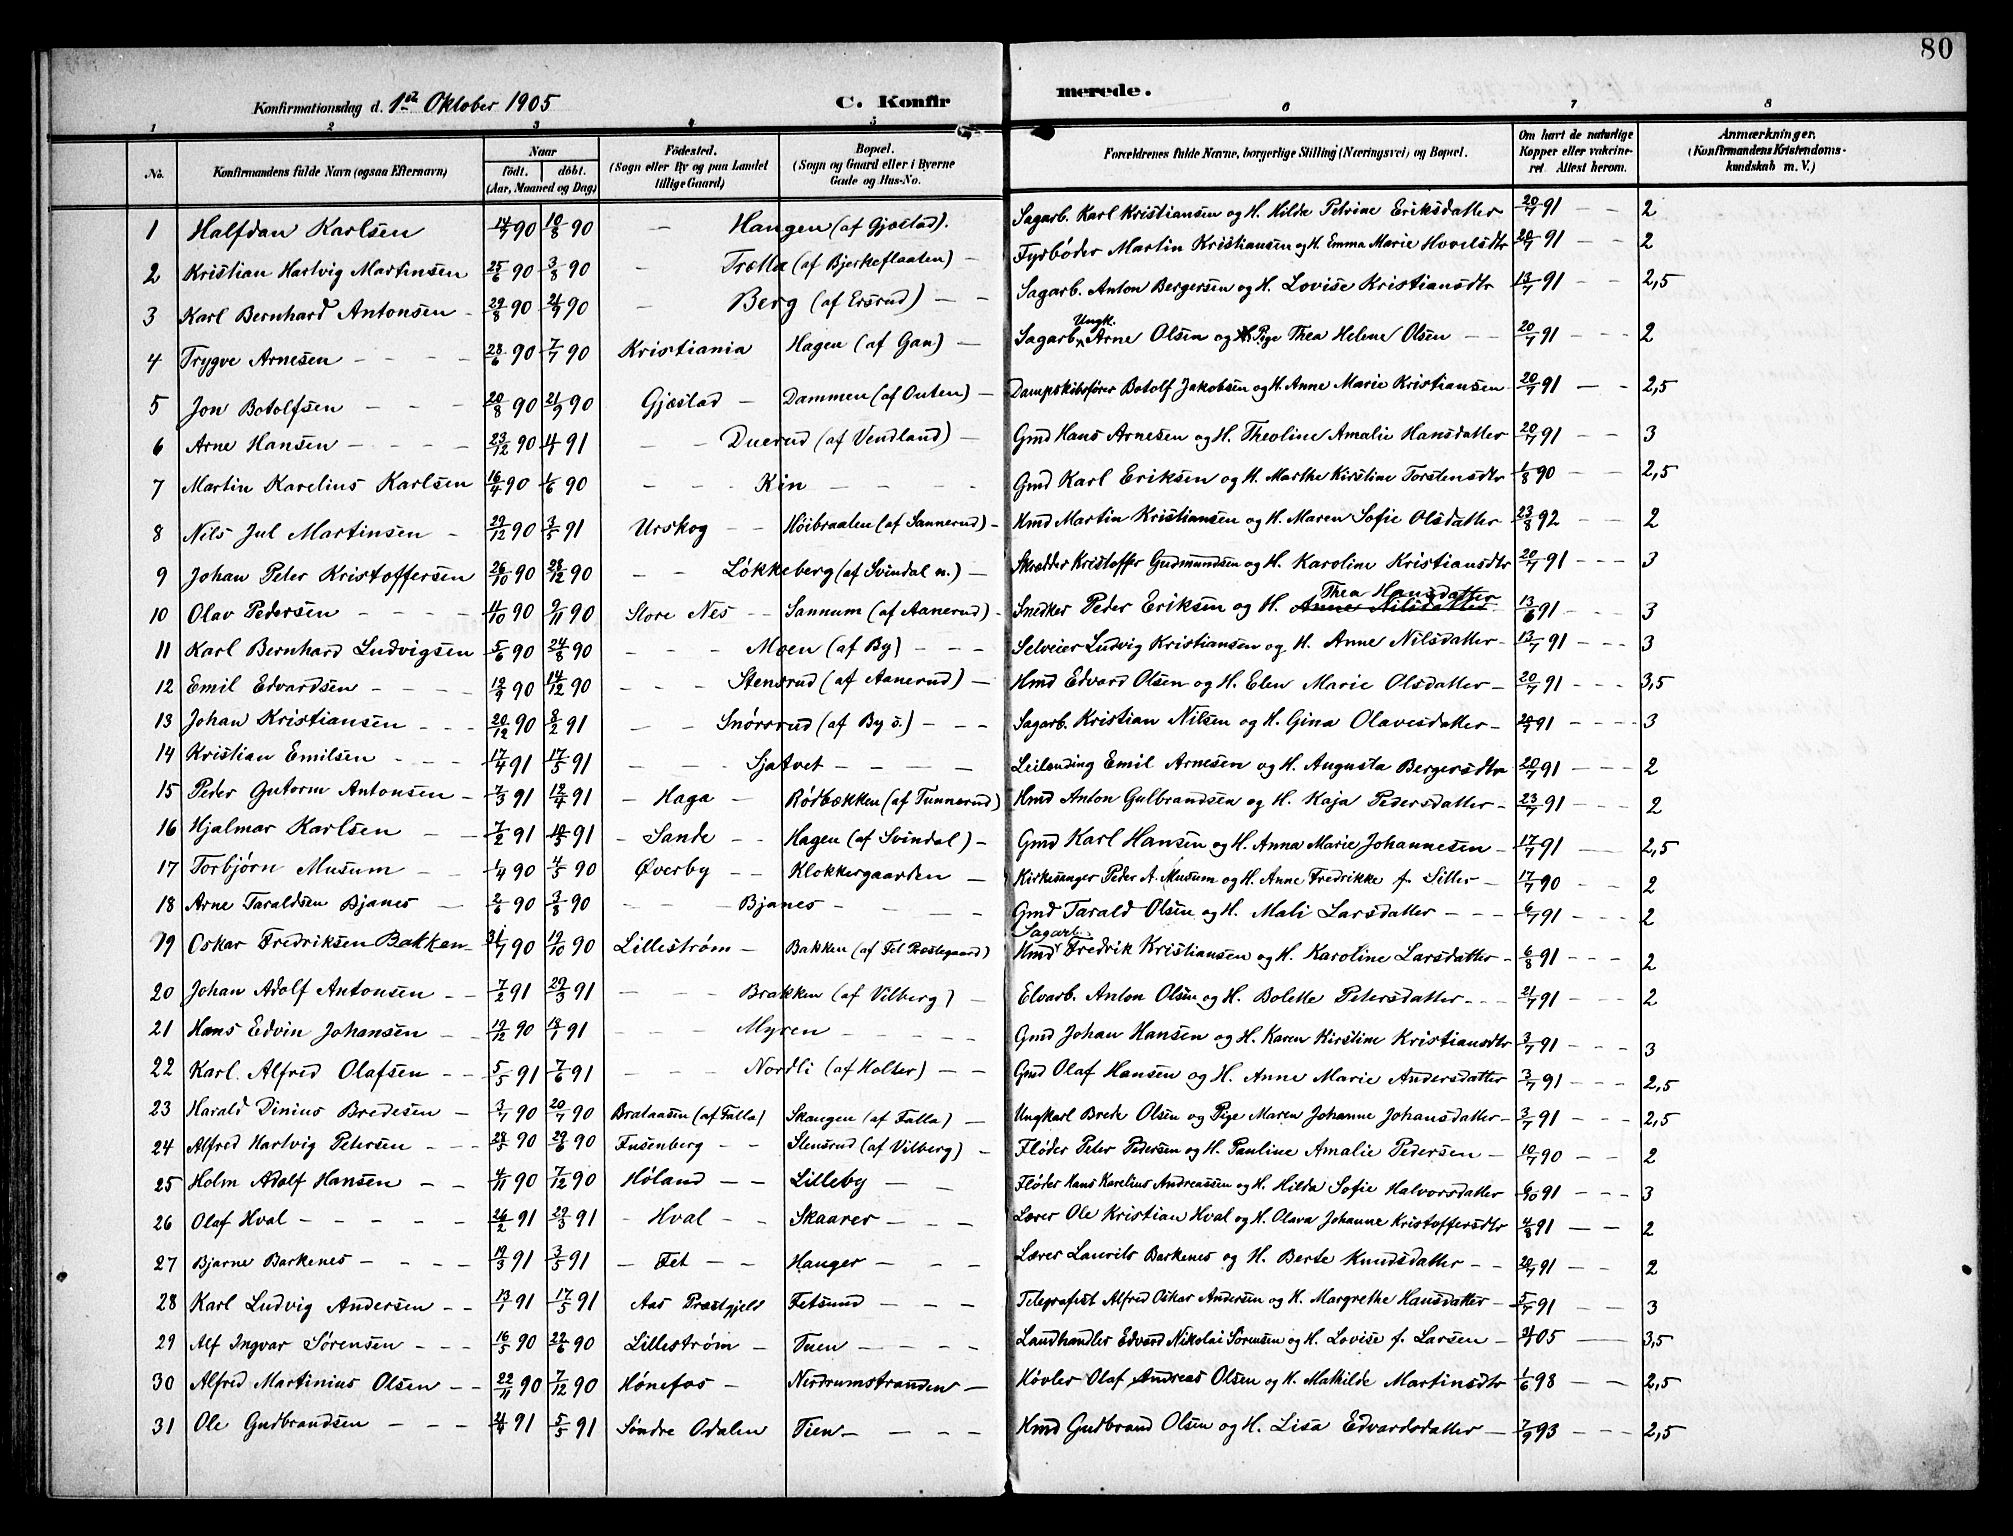 80
Konfirmationsdag d. 1ste Oktober 1905 C. Konfirmerede.
1 2 3 4 5 6 7 8
No. Konfirmandens fulde Navn (ogsaa Efternavn) Naar født. døbt. (Aar, Maaned og Dag) Födested. (Sogn eller By og paa Landet tillige Gaard) Bopæl. (Sogn og Gaard eller i Byerne Gade og Hus-No. Forældrenes fulde Navne, borgerlige Stilling (Næringsvei) og Bopæl. Om havt de naturlige Kopper eller vakcineret Attest herom. Anmærkninger. (Konfirmandens Kristendomskundskab m. V.)
1 Halfdan Karlsen 14/7 90 10/8 90 — Hangen (af Gjøstad). Sagarb. Karl Kristiansen og H. Hilde Petrine Eriksdatter 20/7 91 — — 2
2 Kristian Hartvig Martinsen 25/6 90 3/8 90 — Trætta (af Bjerkeflaaten) — Fyrbøder Martin Kristiansen og H. Emma Marie Hovelsdtr 20/7 91 — — 2
3 Karl Bernhard Antonsen 29/8 90 21/9 90 — Berg (af Ersrud) — — Sagarb. Anton Bergersen og H. Lovise Kristiansdtr 13/7 91 — — 2,5
4 Trygve Arnesen — — — — 28/6 90 7/7 90 Kristiania Hagen (af Gan) — Sagarb. Ungk. Arne Olsen og Pige Thea Helene Olsen — — 20/7 91 — — 2
5 Jon Botolfsen — — — 20/8 90 21/9 90 Gjøstad — Dammen (af Outen) — Dampskibsfører Botolf Jakobsen og H. Anne Marie Kristiansen 20/7 91 — — 2,5
6 Arne Hansen — — — — 23/12 90 1/4 91 — — Duerud (af Vendland) — Gmd Hans Arnesen og H. Theoline Amalie Hansdatter 20/7 91 — — 3
7 Martin Karelius Karlsen 16/4 90 1/6 90 — — — Kin — — — — Gmd Karl Eriksen og H. Marthe Kirstine Torstensdtr 1/8 90 — — 2,5
8 Nils Jul Martinsen — 29/12 90 3/5 91 Urskog — — Höibraaten (af Sannerud) — Hmd Martin Kristiansen og H. Maren Sofie Olsdatter 23/8 92 — — 2
9 Johan Peter Kristoffersen 26/10 90 28/12 90 — — Lökkeberg (af Svindal n.) — Skrædder Kristoffer Gudmundsen og H. Karoline Kristiansdtr 20/7 91 — — 3
10 Olav Pedersen — — — 4/10 90 9/11 90 Store Nes — — Sannum (af Aanerud) — Snedker Peder Eriksen og H. Anne Nilsdatter Thea Hansdatter 13/6 91 — — 3
11 Karl Bernhard Ludvigsen 5/6 90 24/8 90 — — — Moen (af By) — — — Selveier Ludvig Kristiansen og H. Anne Nilsdatter — 13/7 91 — — — 3
12 Emil Edvardsen — — — — 90 14/12 90 — — — Stensrud (af Aanerud) — Hmd Edvard Olsen og H. Elen Marie Olsdatter — 20/7 91 — — — 3,5
13 Johan Kristiansen — — — 20/12 90 8/2 91 — — Snörsrud (af By s.) — — — Sagarb. Kristian Nilsen og H. Gina Olavesdatter — 20/7 91 — — — 3
14 Kristian Emilsen — — — 17/4 91 17/5 91 — — — Sjatvet — — — — Leilending Emil Arnesen og H. Augusta Bergersdtr 20/7 91 — — — 2
15 Peder Gutorm Antonsen — 7/3 91 12/4 91 — Haga — Rödbækken (af Tunnerud) Hmd Anton Gulbrandsen og H. Kaja Pedersdatter — 23/7 91 — — — 2
16 Hjalmar Karlsen — — 7/2 91 91 — Sande — — Hagen (af Svindal) — Gmd Karl Hansen og H. Anna Marie Johannesen — 17/7 91 — — — 2,5
17 Torbjørn Musum — — 1/4 90 4/5 90 Øverby — — Klokkergaarden — Kirkesanger Peder A. Musum og H. Anne Fredrikke f. Siller — 17/7 90 — — 2
18 Arne Taraldsen Bjanes — 2/6 90 3/8 90 — — — Bjanes — — — — Gmd Tarald Olsen og H. Mali Larsdatter — — — 6/7 91 — — 2
19 Oskar Fredriksen Bakken — 31/7 90 19/10 90 Lillestrøm — Bakken (af Fet Præstegaard) Hmd Sagarb. Fredrik Kristiansen og H. Karoline Larsdatter — 6/8 91 — — — 2
20 Johan Adolf Antonsen — — 7/2 91 29/3 91 — — — Brakken (af Vilberg) — Elvarb. Anton Olsen og H. Bolette Petersdatter — — — 21/7 91 — — 2
21 Hans Edvin Johansen — — 19/12 90 18/1 91 — — Myren — — — — Gmd Johan Hansen og H. Karen Kirstine Kristiansdtr 3/7 91 — — — 3
22 Karl Alfred Olafsen — — 5/5 91 7/6 91 — — — Nordli (af Holter) — — Gmd Olaf Hansen og H. Anne Marie Andersdatter 3/7 91 — — — 2,5
23 Harald Dinius Bredesen — 3/7 90 20/7 90 Brataasen (af Falla) Skangen (af Falla) — Ungkarl Brede Olsen og Pige Maren Johanne Johansdatter — 3/7 91 — — — 2,5
24 Alfred Hartvig Petersen — — — 28/5 90 29/6 90 Fusenberg — — Stensrud (af Vilberg) — Fløder Peter Pedersen og H. Pauline Amalie Pedersen — 10/7 90 — — 2
25 Holm Adolf Hansen — — 4/11 90 7/12 90 Høland — — Lilleby — — Fløder Hans Karelius Andreassen og H. Hilda Sofie Halvorsdatter 6/10 91 — — — 3
26 Olaf Hval — — — — — 26/2 91 29/3 91 — Hval — — Skaarer — — — Lærer Ole Kristian Hval og H. Olava Johanne Kristoffersdtr 4/8 91 — — 2
27 Bjarne Barkenes — — — — 19/3 91 3/5 91 — Fet — — Hanger — — — Lærer Laurits Barkenes og H. Berte Knudsdatter — — 20/7 91 — — 2
28 Karl Ludvig Andersen — — 13/1 91 17/5 91 Aas Præstgjeld Fetsund — — — Telegrafist Alfred Oskar Andersen og H. Margrethe Hansdatter — 5/7 91 — — — 3
29 Alf Ingvar Sørensen — — — 16/5 90 22/6 90 Lillestrøm — Tuen — — — — — Landhandler Edvard Nikolai Sørensen og H. Lovise f. Larsen — 05 — — 3,5
30 Alfred Martinius Olsen — — 22/11 90 7/12 90 Hønefos — Nerdrumstranden — Høvler Olaf Andreas Olsen og H. Mathilde Martinsdtr 1/6 98 — — — 2,5
31 Ole Gudbrandsen — — — 91 5/5 91 Søndre Odalen Tien — — — — Hmd Gudbrand Olsen og H. Lisa Edvardsdatter — 7/9 93 — — — 2,5